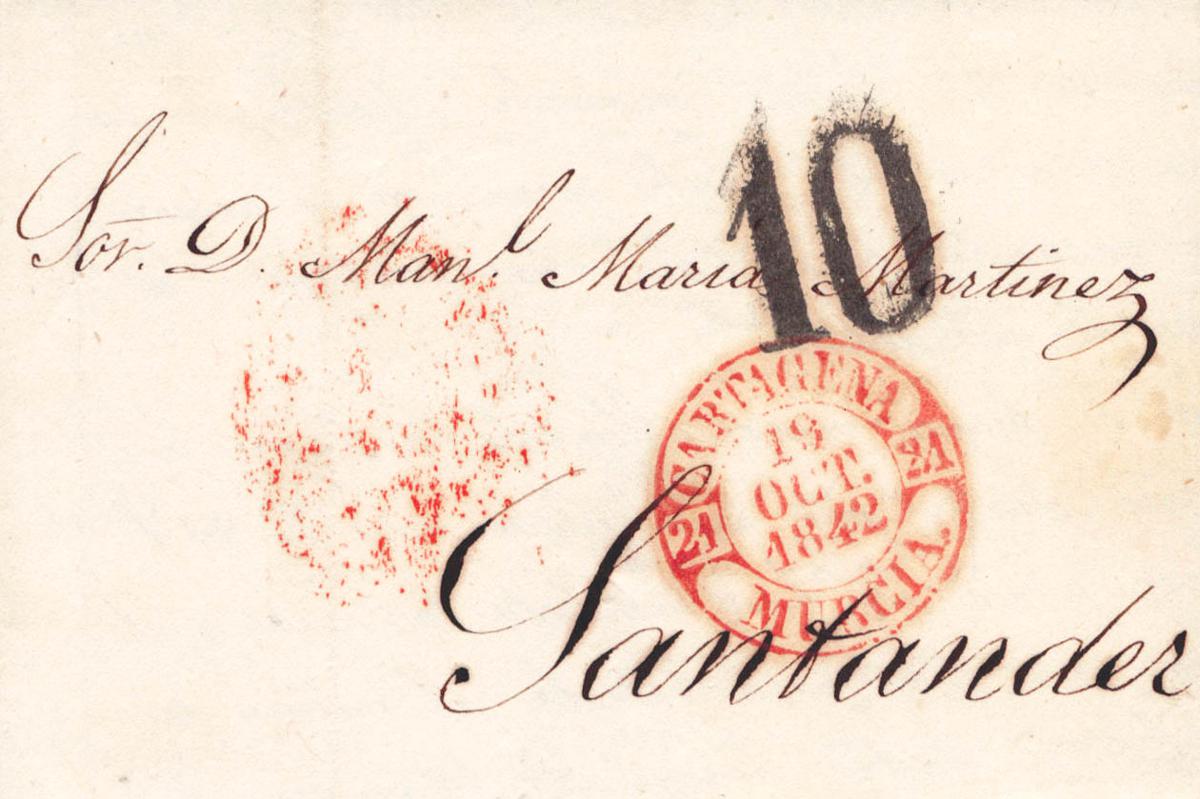 10
Sor. D. Manl. Maria Martinez
CARTAGENA
21
19
OCT.
1842
21
MURCIA.
Santander